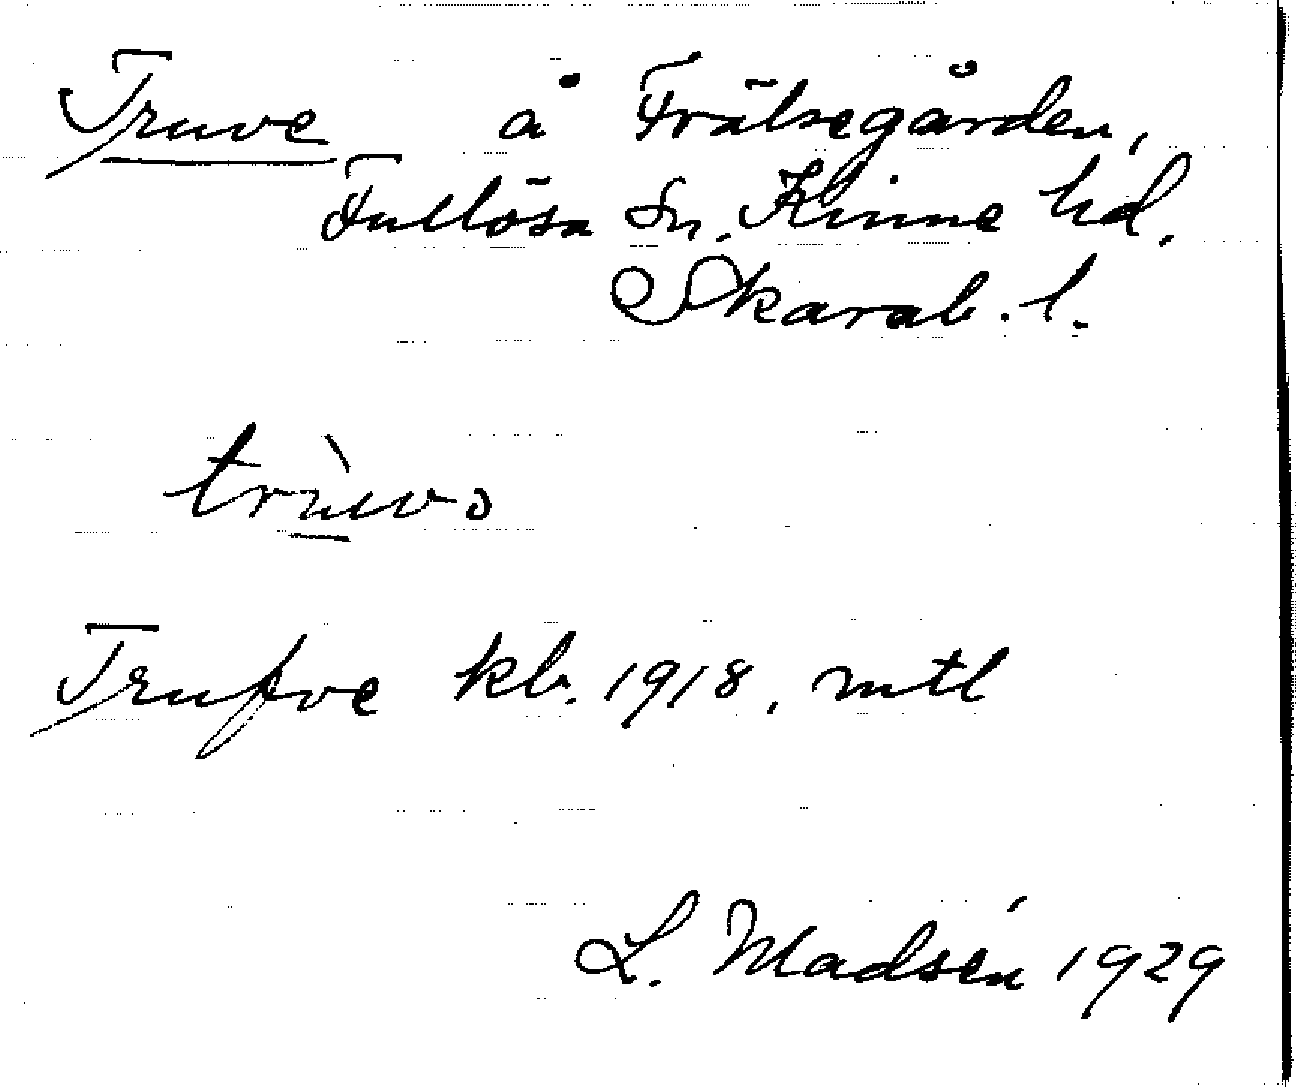 Truve å Frälsegården,
Fullösa sn. Kinne hd.
Skarab. l.
trùvɔ
Trufve kb. 1918, mtl
L. Madsén 1929